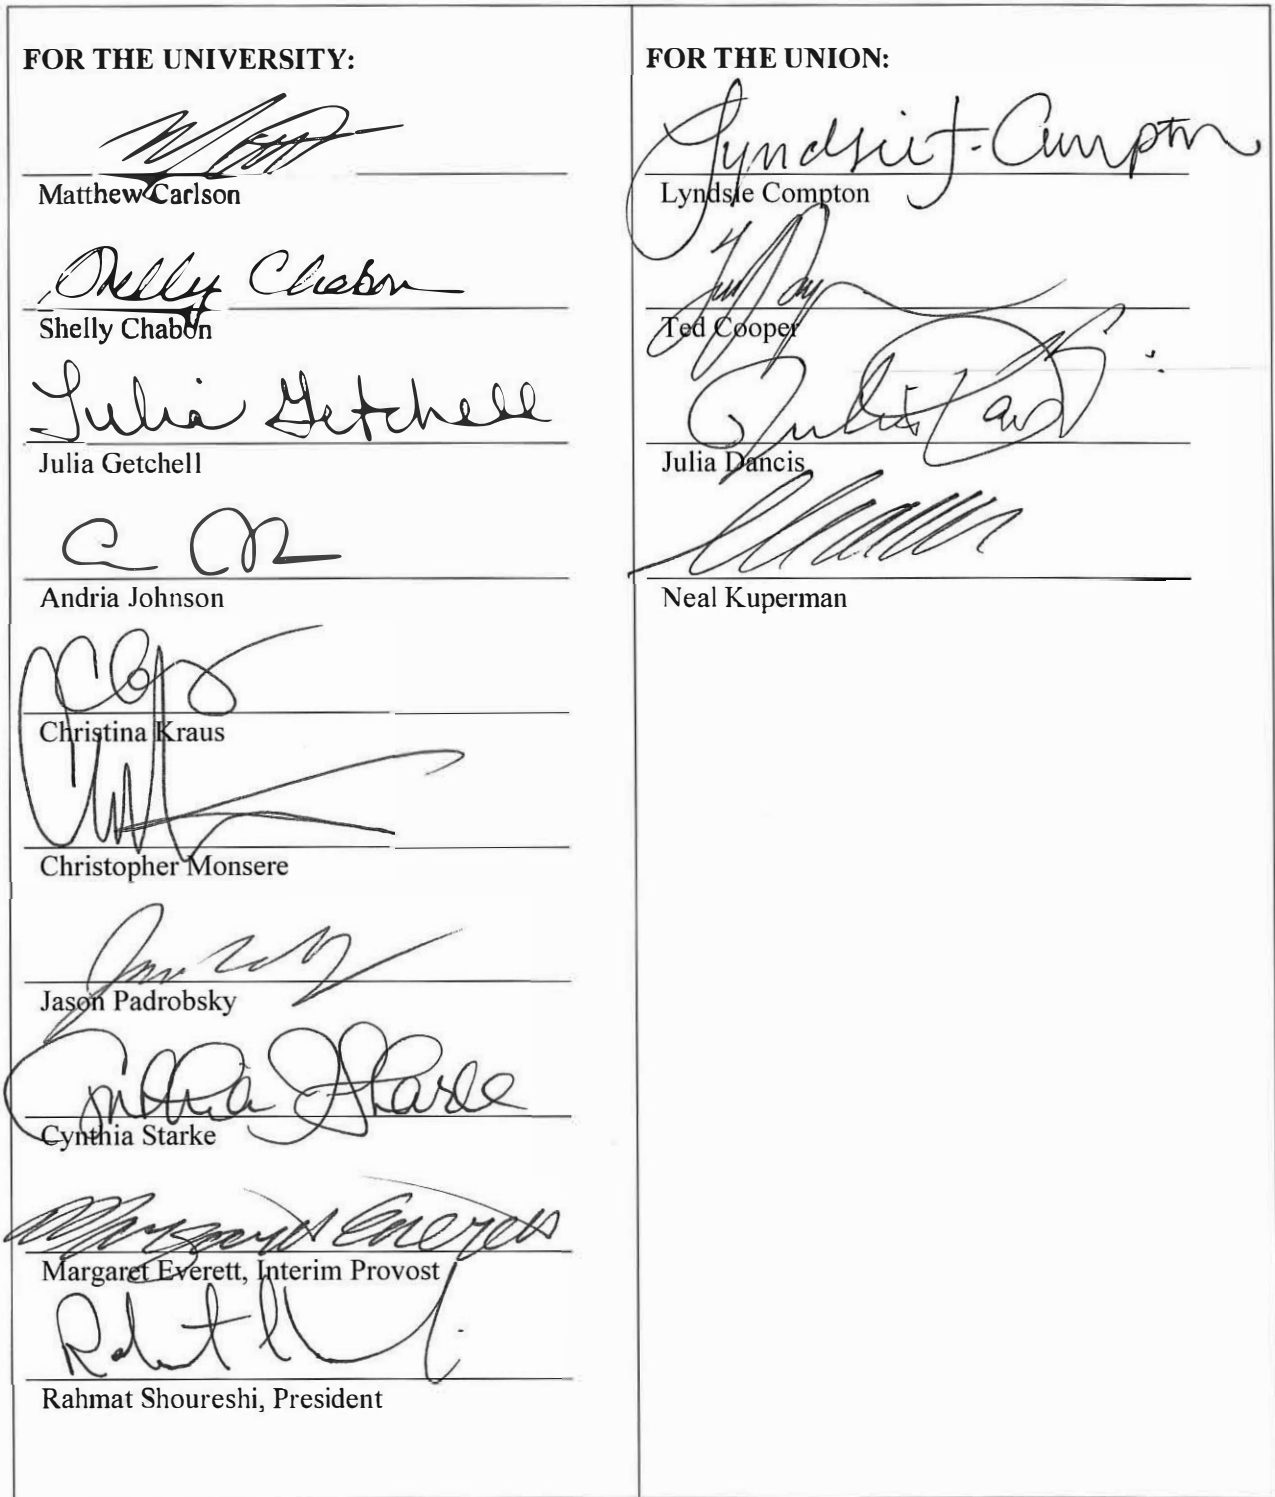 FOR THE UNIVERSITY:
Matthew Carlson
Shelly Chabon
Shelly Chabon
Julia Getchell
Julia Getchell
Andria Johnson
Christina Kraus
Christopher Monsere
Jason Padrobsky
Cynthia Starke
Cynthia Starke
Margaret Everett
Margaret Everett, Interim Provost
Rahmat Shoureshi, President
FOR THE UNION:
Lyndsie Compton
Ted Cooper
Julia Dancis
Neal Kuperman